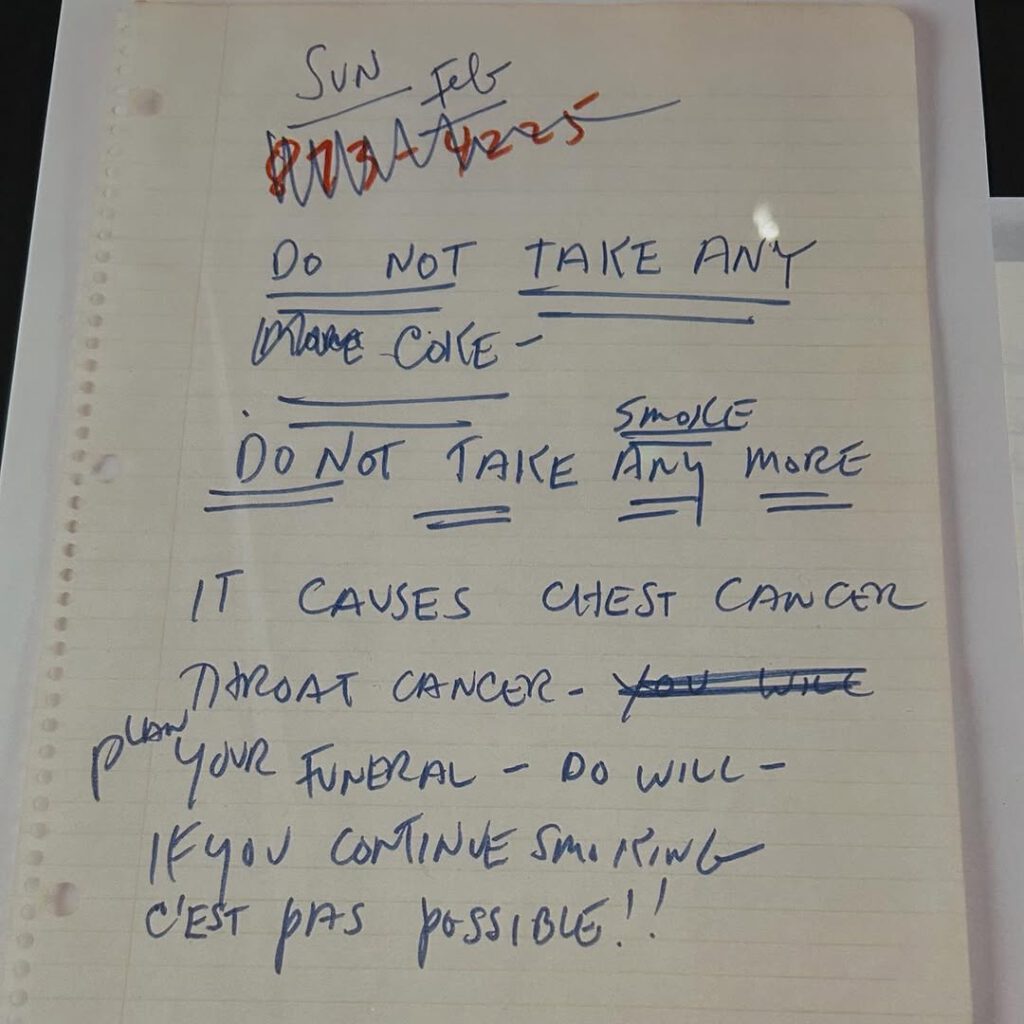 SUN Feb
873-4225
DO NOT TAKE ANY
MORE COKE -
SMOKE
DO NOT TAKE ANY MORE
IT CAUSES CHEST CANCER
THROAT CANCER - YOU WILL
PLAN YOUR FUNERAL - DO WILL -
IF YOU CONTINUE SMOKING
C'EST PAS POSSIBLE!!